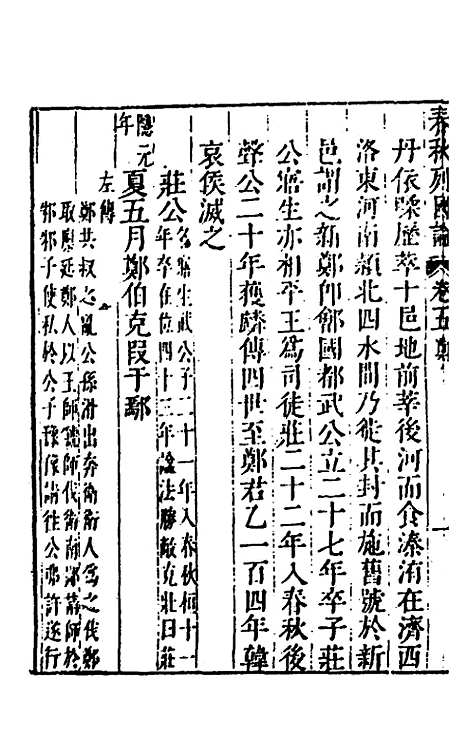 春秋列國論 卷五 鄭
丹依㽥歷莘十邑地前莘後河而食溱洧在濟西
洛東河南潁北四水間乃徙其封而施舊號於新
邑謂之新鄭仰鄶國都武公立二十七年卒子莊
公寤生亦相平王爲司徒莊二十二年入春秋後
聲公二十年獲麟傳四世至鄭君乙一百四年韓
哀侯滅之
莊公名寤生武公子二十一年入春秋桓十一
年卒在位四十三年諡法勝敵克壯曰莊
隱元年
夏五月鄭伯克段于鄢
左傳
鄭共叔之亂公孫滑出奔衛衛人爲之伐鄭
取廩延鄭人以王師虢師伐衛南鄙請師於
邾邾子使私於公子豫豫請往公弗許遂行